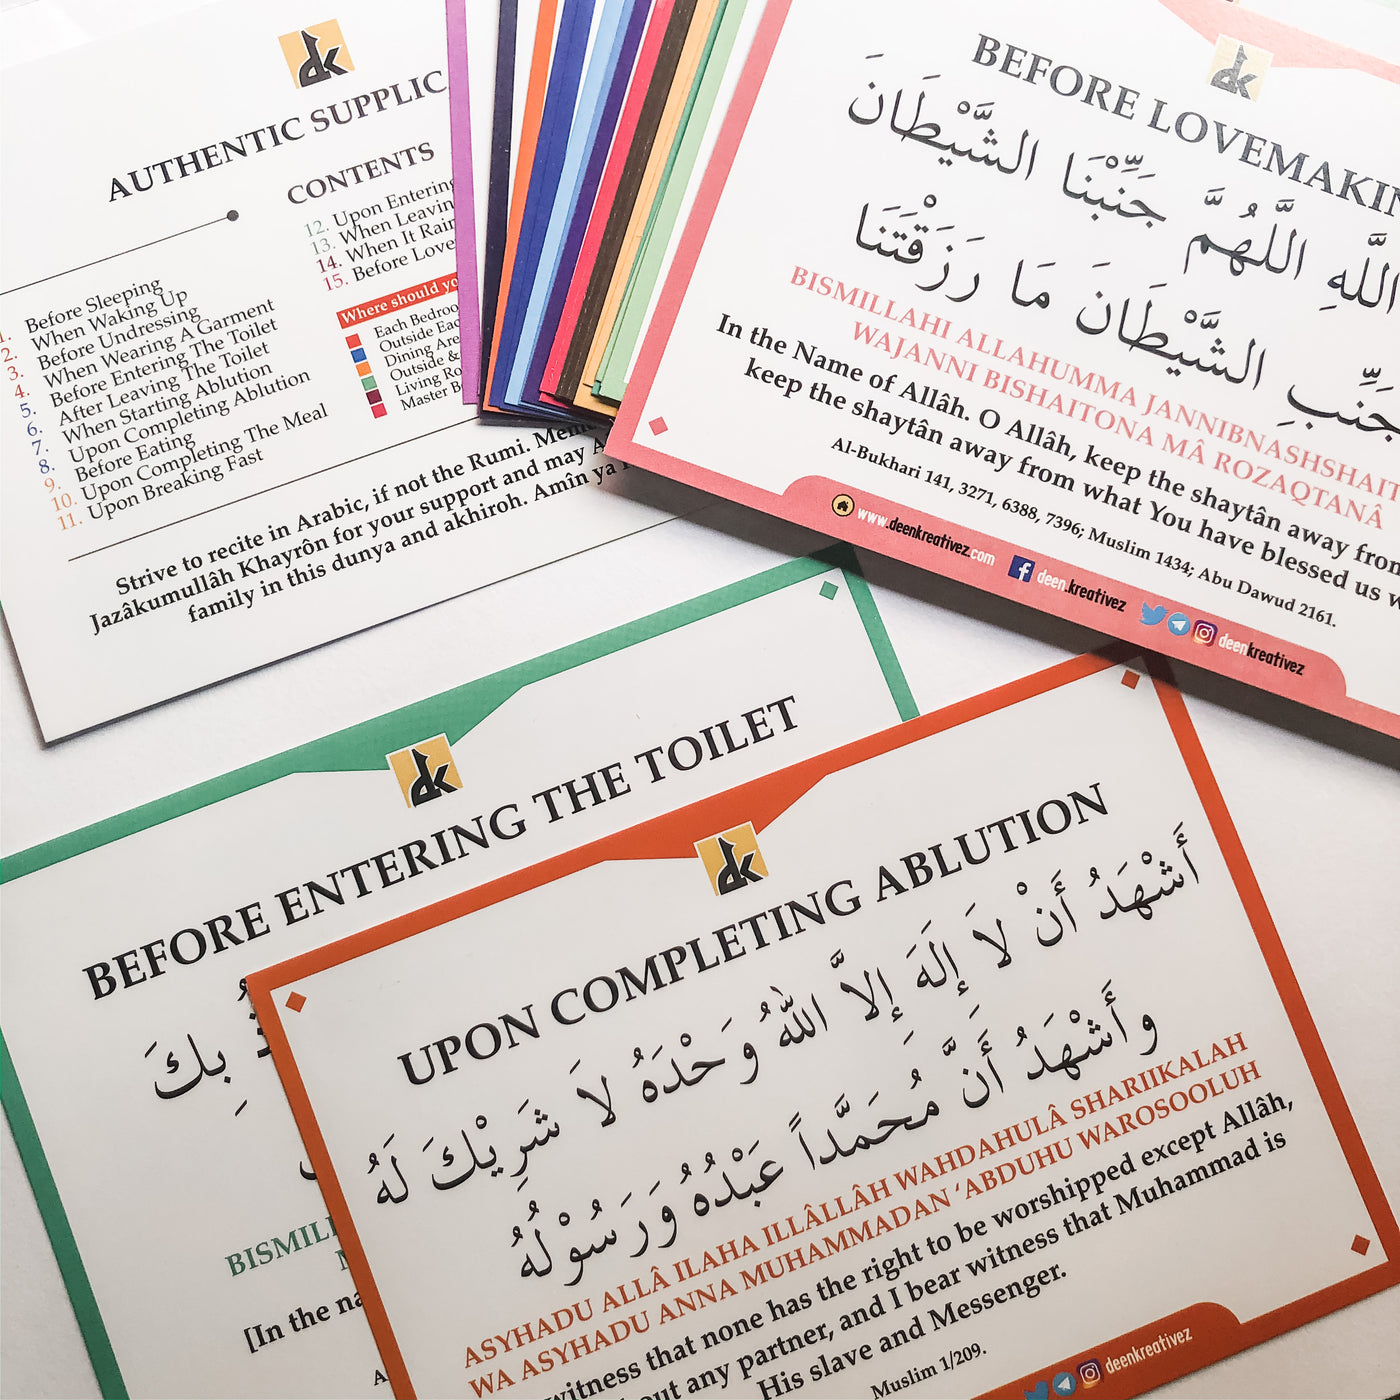 dk
AUTHENTIC SUPPLIC
CONTENTS
1. Before Sleeping
2. When Waking Up
3. Before Undressing
4. When Wearing A Garment
5. Before Entering The Toilet
6. After Leaving The Toilet
7. When Starting Ablution
8. Upon Completing Ablution
9. Before Eating
10. Upon Completing The Meal
11. Upon Breaking Fast
12. Upon Entering
13. When Leavin
14. When It Rain
15. Before Love
Where should yo
Each Bedroo
Outside Eac
Dining Are
Outside &
Living Ro
Master B
Strive to recite in Arabic, if not the Rumi. Mem
Jazâkumullâh Khayrôn for your support and may A
family in this dunya and akhiroh. Amîn ya
dk
BEFORE LOVEMAKIN
اللَّهِ اللَّهُمَّ جَنِّبْنَا الشَّيْطَانَ
جَنِّبِ الشَّيْطَانَ مَا رَزَقْتَنَا
BISMILLAHI ALLAHUMMA JANNIBNASHSHAIT
WAJANNI BISHAITONA MÂ ROZAQTANÂ
In the Name of Allâh. O Allâh, keep the shaytân away from
keep the shaytân away from what You have blessed us w
Al-Bukhari 141, 3271, 6388, 7396; Muslim 1434; Abu Dawud 2161.
www.deenkreativez.com deen.kreativez deenkreativez
dk
BEFORE ENTERING THE TOILET
بِكَ
BISMILL
[In the na
dk
UPON COMPLETING ABLUTION
أَشْهَدُ أَنْ لاَ إِلَهَ إِلاَّ اللهُ وَحْدَهُ لاَ شَرِيْكَ لَهُ
وأَشْهَدُ أَنَّ مُحَمَّداً عَبْدُهُ وَرَسُوْلُهُ
ASYHADU ALLÂ ILAHA ILLÂLLÂH WAHDAHULÂ SHARIIKALAH
WA ASYHADU ANNA MUHAMMADAN ‘ABDUHU WAROSOOLUH
witness that none has the right to be worshipped except Allâh,
out any partner, and I bear witness that Muhammad is
His slave and Messenger.
Muslim 1/209.
deenkreativez